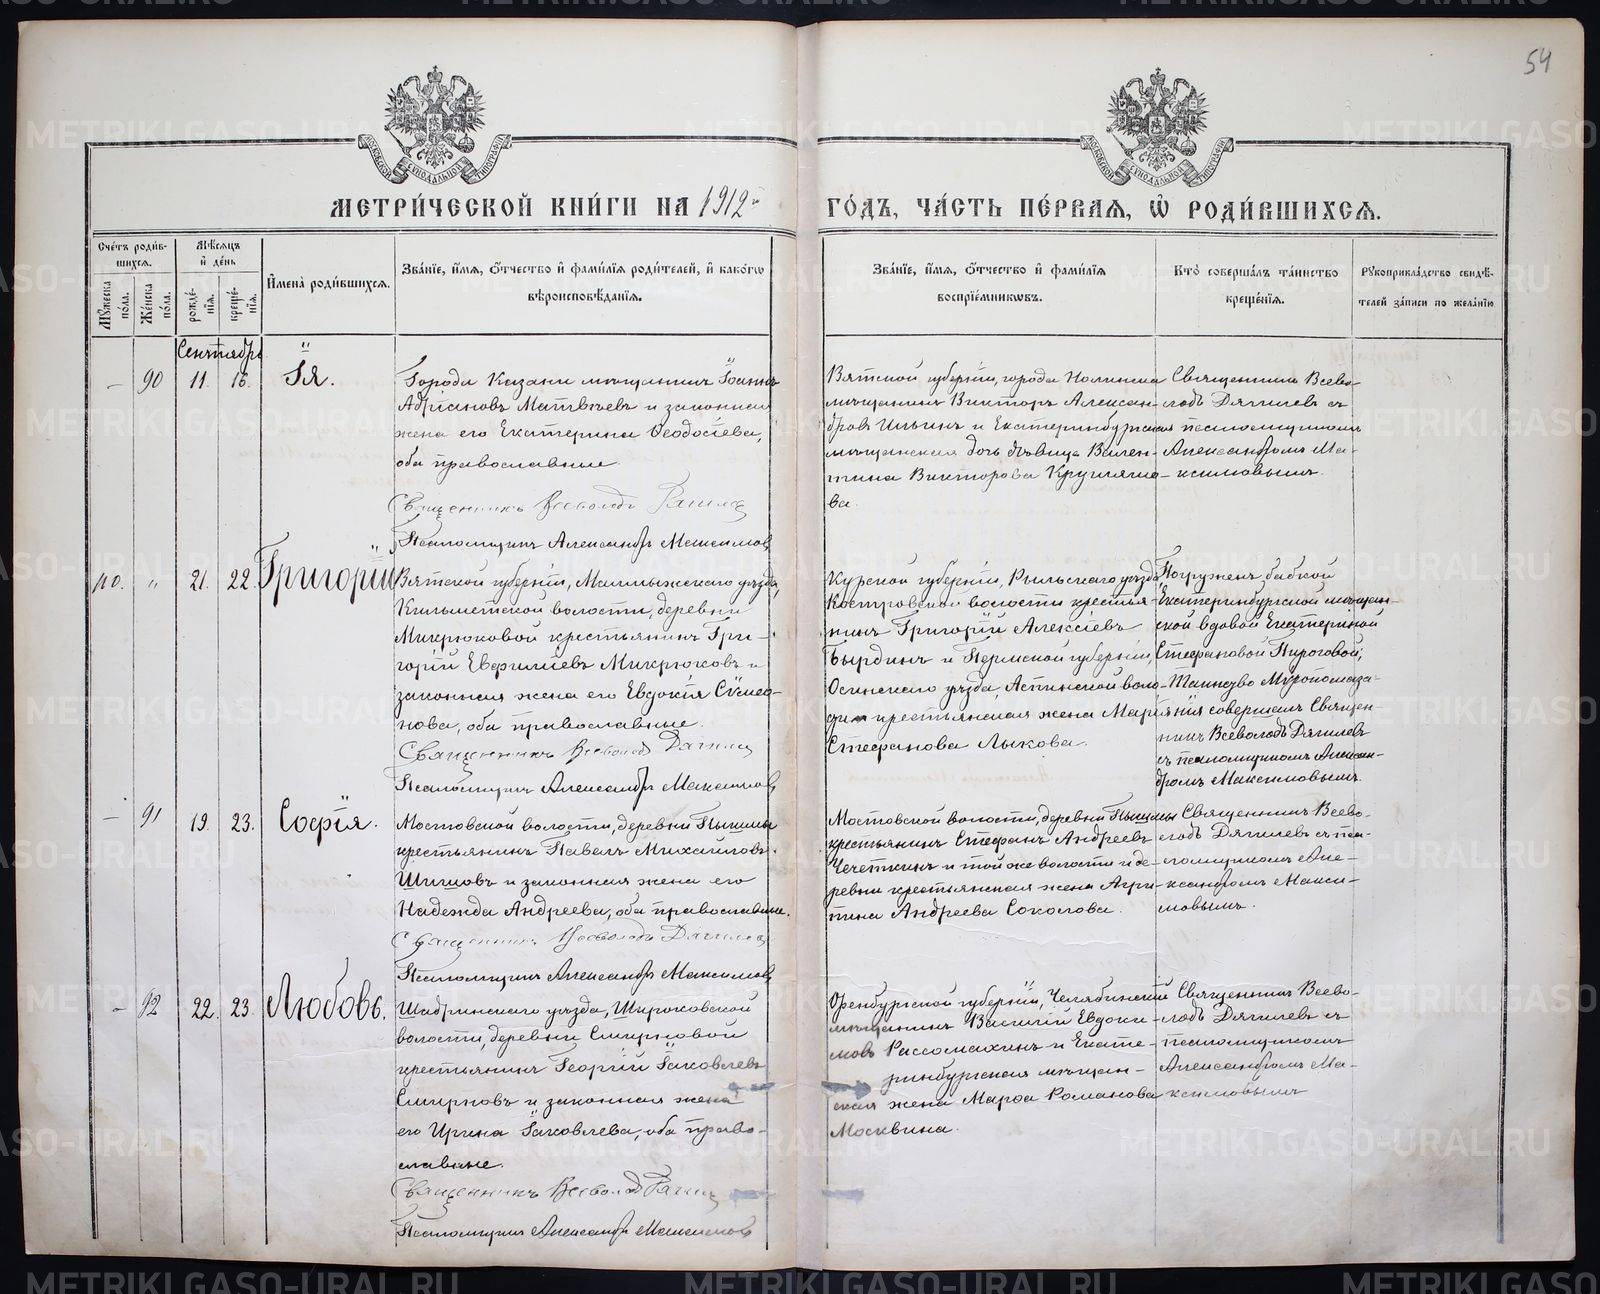 54
МОСКОВСКОЙ СѴНОДАЛЬНОЙ ТИПОГРАФІИ
МОСКОВСКОЙ СѴНОДАЛЬНОЙ ТИПОГРАФІИ
МЕТРИ́ЧЕСКОЙ КНИ́ГИ НА 1912й
ГО́ДЪ, ЧА́СТЬ ПЕ́РВАѦ, Ѡ҆ РОДИ́ВШИХСѦ.
Сче́тъ роди́в-
шихсѧ.
Мѣ́сѧцъ
и҆ де́нь
Мꙋ́жеска по́ла.
Же́нска по́ла.
рожде́-
нїѧ.
креще́-
нїѧ.
И҆мена̀ роди́вшихсѧ.
Зва́нїе, и҆́мѧ, ѻ҆́тчество и҆ фами́лїѧ роди́телей, и҆ како́гѡ
вѣроисповѣ́данїѧ.
Зва́нїе, и҆́мѧ, ѻ҆́тчество и҆ фами́лїѧ
воспрїе́мникѡвъ.
Кто̀ соверша́лъ та́инство
креще́нїѧ.
Рꙋкоприкла́дство свидѣ́-
телей за́писи по жела́нїю
Сентябрь
— 90 11. 16. Ія.
Города Казани мѣщанинъ Іоаннъ
Адріановъ Матвѣевъ и законная
жена его Екатерина Ѳеодосіева,
оба православные.
Священникъ Всеволодъ Дягилевъ
Псаломщикъ Александръ Максимовъ
Вятской губерніи, города Нолинска
мѣщанинъ Викторъ Алексан-
дровъ Ильинъ и Екатеринбургская
мѣщанская дочь дѣвица Вален-
тина Викторова Кругляшо-
ва.
Священникъ Всево-
лодъ Дягилевъ съ
псаломщикомъ
Александромъ Ма-
ксимовымъ.
по. „ 21. 22. Григорій
Вятской губерніи, Малмыжскаго уѣзда,
Кильметской волости, деревни
Микрюковой крестьянинъ Гри-
горій Евфиміевъ Микрюковъ и
законная жена его Евдокія Сѵмео-
нова, оба православные.
Священникъ Всеволодъ Дягилевъ
Псаломщикъ Александръ Максимовъ
Курской губерніи, Рыльскаго уѣзда,
Костровской волости крестья-
нинъ Григорій Алексіевъ
Бырдинъ и Пермской губерніи,
Осинскаго уѣзда, Аспинской воло-
сти крестьянская жена Марія
Стефанова Лыкова.
Погруженъ бабкой
Екатеринбургской мѣщан-
ской вдовой Екатериной
Стефановой Пироговой;
Таинство Мѵропомаза-
нія совершалъ Священ-
никъ Всеволодъ Дягилевъ
съ псаломщикомъ Алексан-
дромъ Максимовымъ.
— 91 19. 23. Софія.
Мостовской волости, деревни Пышмы
крестьянинъ Павелъ Михайловъ
Шиловъ и законная жена его
Надежда Андреева, оба православные.
Священникъ Всеволодъ Дягилевъ
Псаломщикъ Александръ Максимовъ
Мостовской волости, деревни Пышмы
крестьянинъ Стефанъ Андреевъ
Чечеткинъ и той же волости и де-
ревни крестьянская жена Агри-
пина Андреева Соколова.
Священникъ Всево-
лодъ Дягилевъ съ пса-
ломщикомъ Але-
ксандромъ Макси-
мовымъ.
— 92 22. 23. Любовь.
Шадринскаго уѣзда, Широковской
волости, деревни Смирновой
крестьянинъ Георгій Іаковлевъ
Смирновъ и законная жена
его Ирина Іаковлева, оба право-
славные.
Священникъ Всеволодъ Дягилевъ
Псаломщикъ Александръ Максимовъ
Оренбургской губерніи, Челябинскій
мѣщанинъ Василій Евдоки-
мовъ Рассомахинъ и Екате-
ринбургская мѣщан-
ская жена Марѳа Романова
Москвина.
Священникъ Всево-
лодъ Дягилевъ съ
псаломщикомъ
Александромъ Ма-
ксимовымъ
METRIKI.GASO-URAL.RU